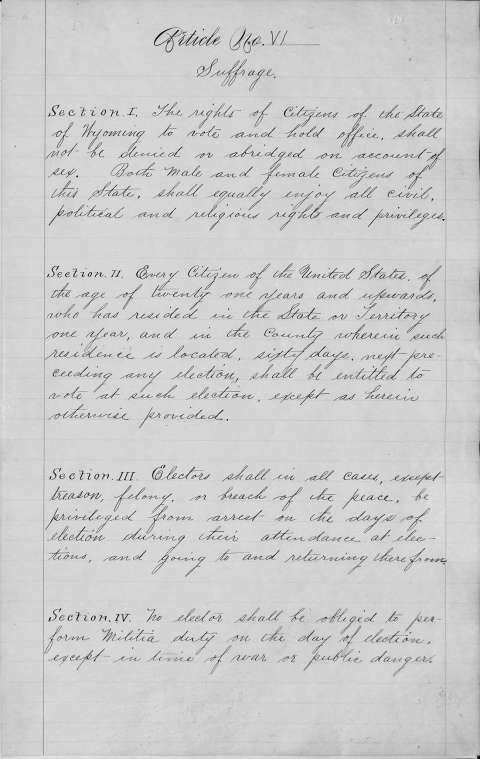 Article No. VI
Suffrage.
Section. I. The rights of Citizens of the State
of Wyoming to vote and hold office, shall
not be denied or abridged on account of
sex. Both male and female Citizens of
this State, shall equally enjoy all civil,
political and religious rights and privileges.
Section. II. Every Citizen of the United States, of
the age of twenty one years and upwards,
who has resided in the State or Territory
one year, and in the County wherein such
residence is located, sixty days, next pre-
ceeding any election, shall be entitled to
vote at such election, except as herein
otherwise provided.
Section. III. Electors shall in all cases, except
treason, felony, or breach of the peace, be
privileged from arrest on the days of
election during their attendance at elec-
tions, and going to and returning therefrom.
Section. IV. No elector shall be obliged to per-
form Militia duty on the day of election,
except in time of war or public danger.